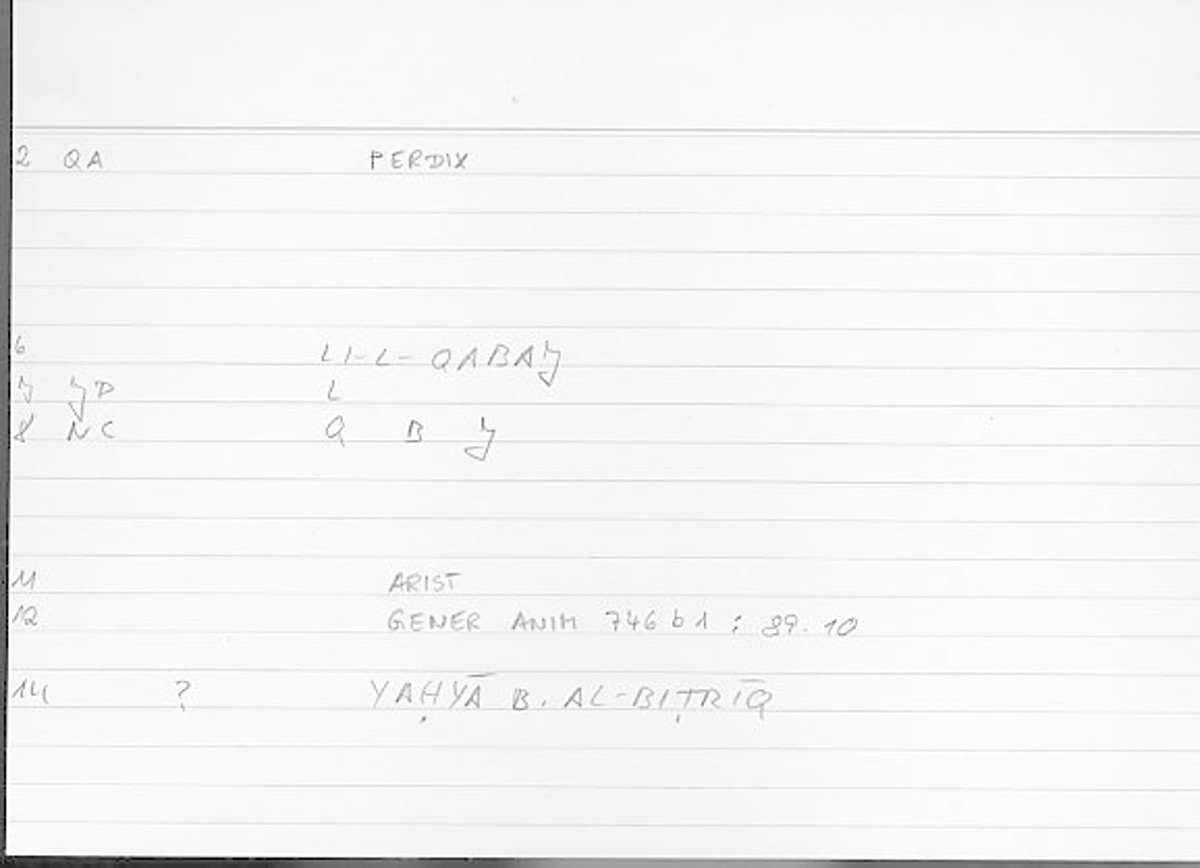 2 QA PERDIX
6 LI-L-QABAJ
7 JD L
8 NC Q B J
11 ARIST
12 GENER ANIM 746 b 1 : 89.10
14 ? YAḤYĀ B. AL-BIṬRĪQ